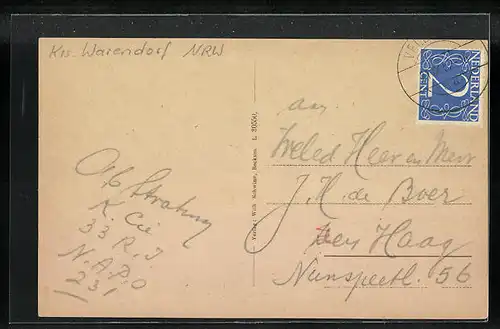 Krs. Warendorf NRW
NEDERLAND
2
CENT
aan
Weled Heer en Mevr
J. H. de Boer
Den Haag
Nunspeetl. 56
K. Cie
33 R. I
N.A.P.O
231
Verlag: Wilh. Schwier, Beckum. L. 20550.